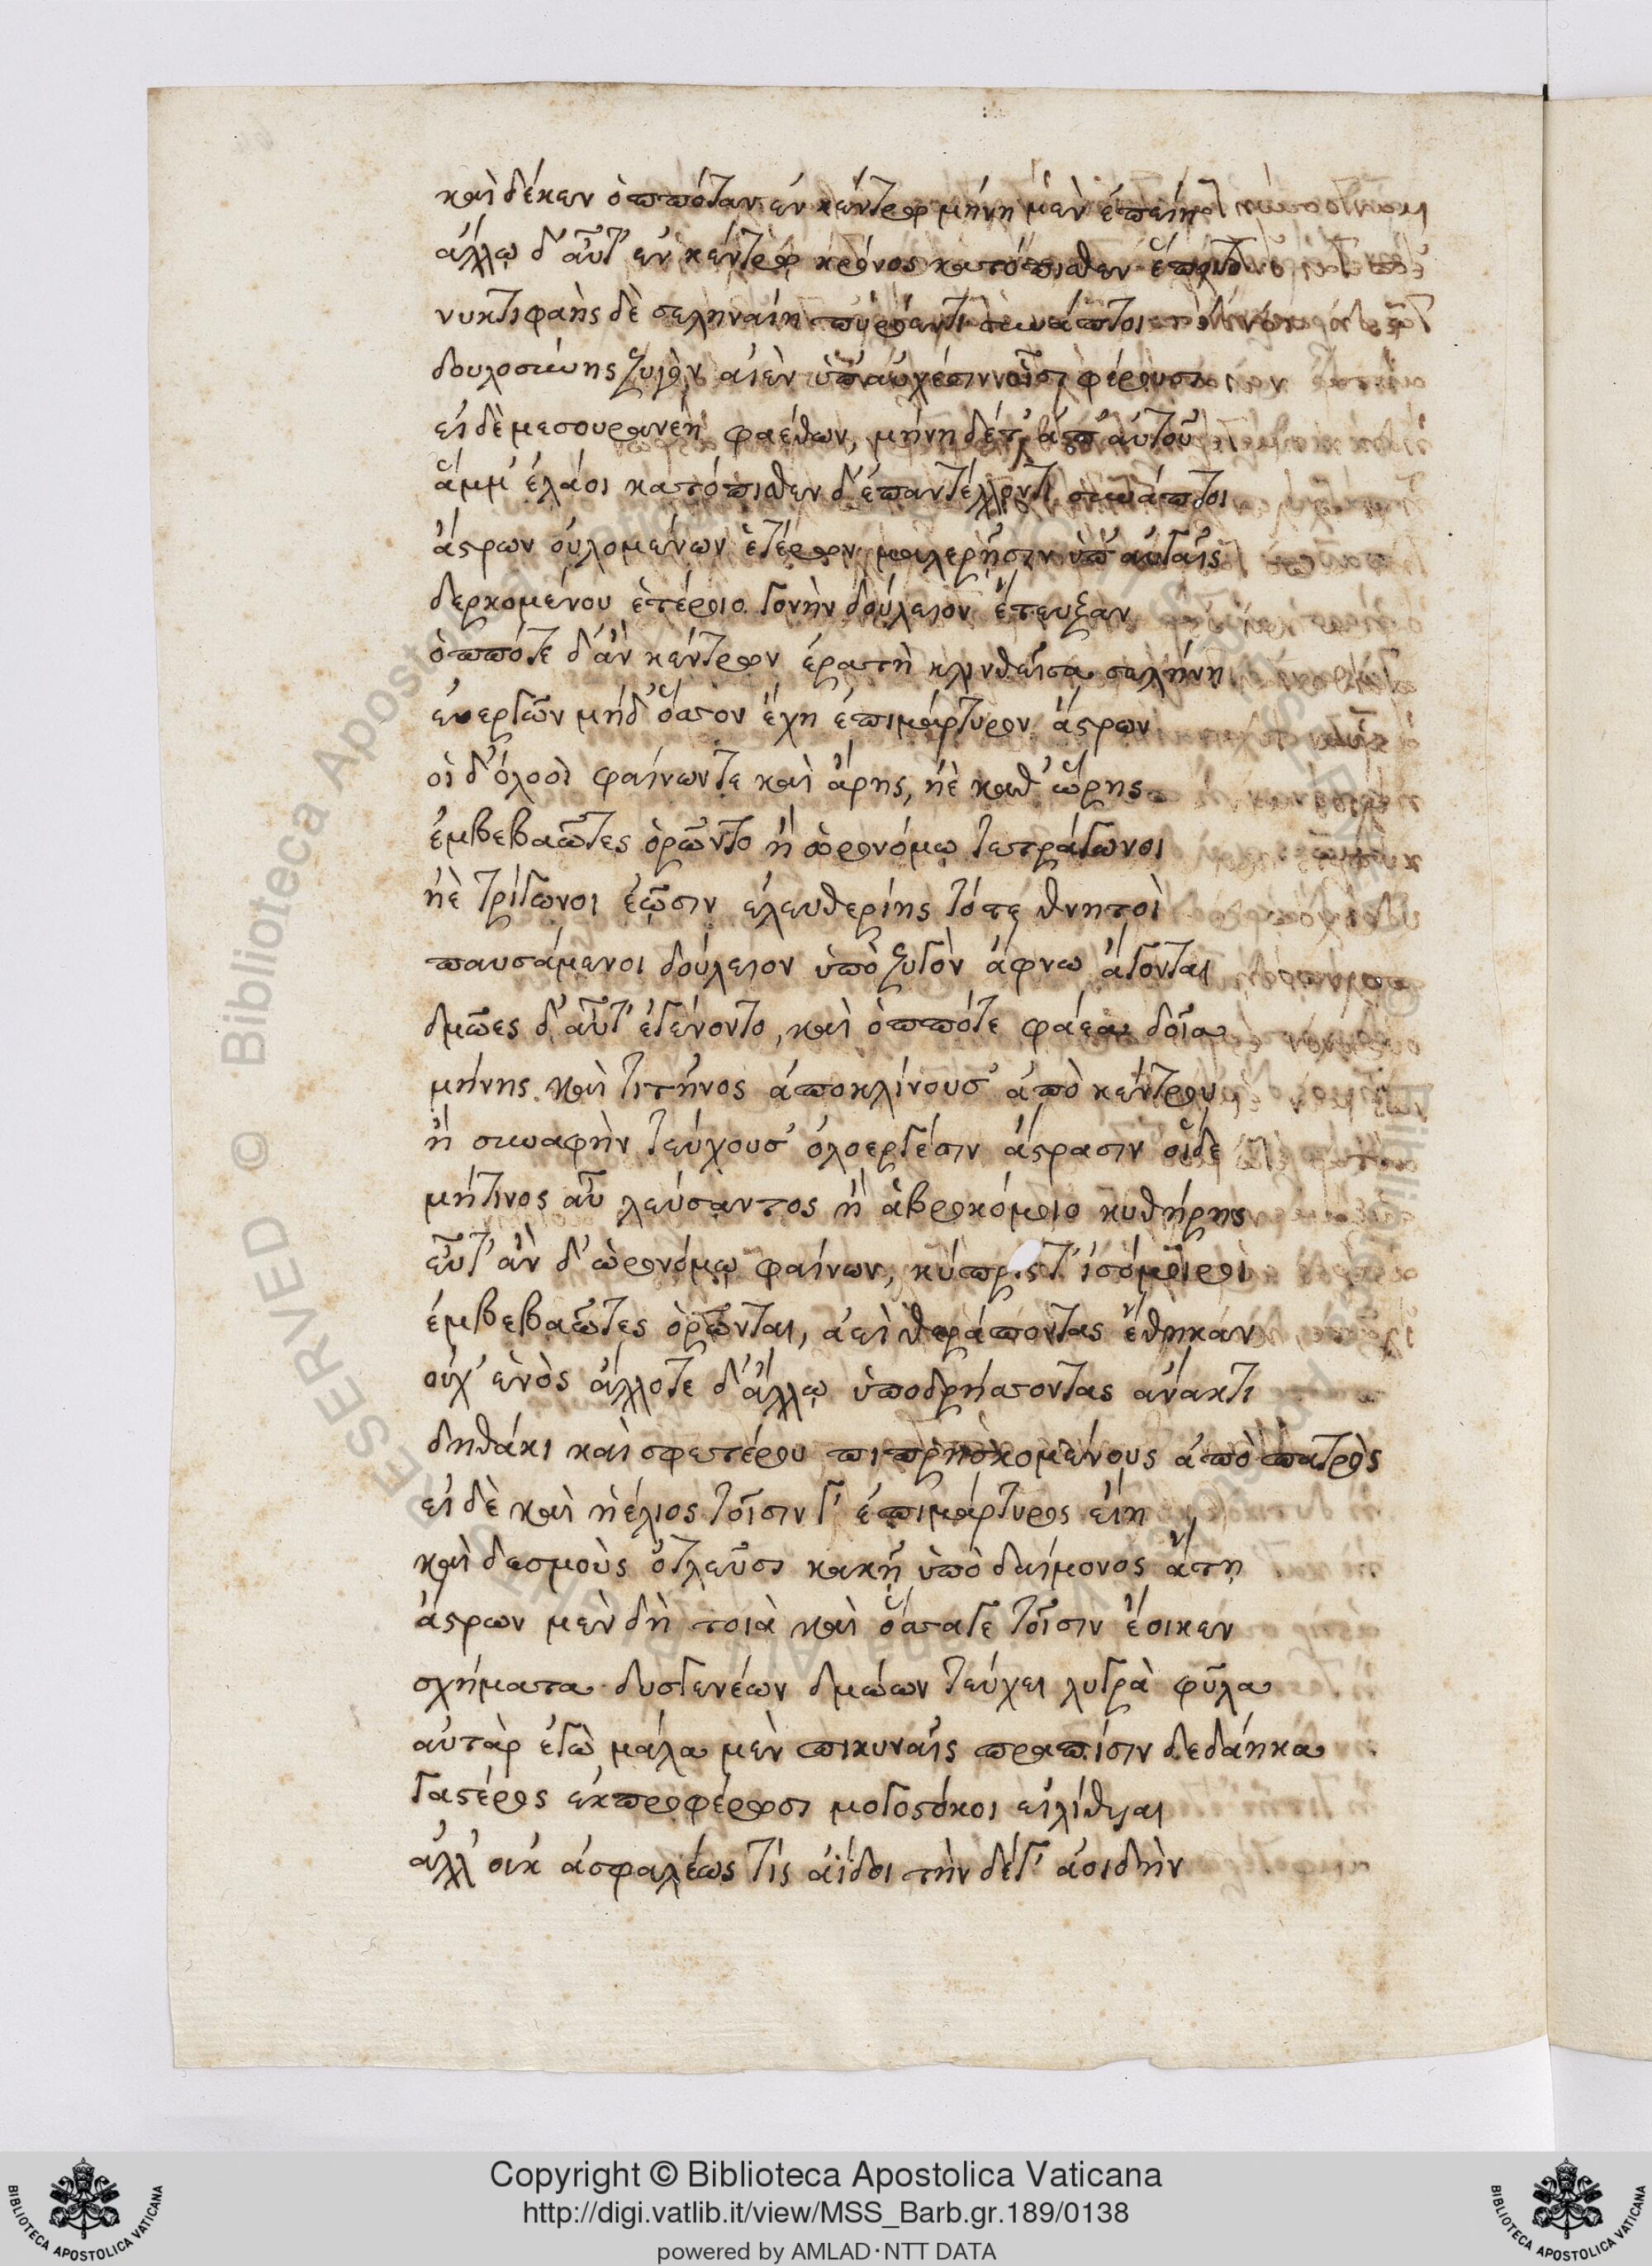 καὶ δέκεν ὁππόταν ἐν κέντρω μήνη μὲν ἐπείη
ἄλλω δ' αὖτ' ἐν κέντρω κρόνος κατόπισθεν ἕποιτο
νυκτιφαὴς δὲ σεληναίη πυρόεντι συνάπτοι
δουλοσύνης ζυγὸν αἰὲν ὑπ' αὐχέσιν οἷσι φέρουσι
εἰ δὲ μεσουρανέη φαέθων, μήνη δέτ' ἀπ' αὐτοῦ
ἅμμ' ἐλάοι κατόπισθεν δ' ἐπαντέλλοντι συνάπτοι
ἄστρων οὐλομένων ἑτέρων μαλερῇσιν ὑπ' αὐταῖς
δερκομένου ἑτέροιο γονὴν δούλειον ἔτευξαν
ὁππότε δ' ἂν κέντρων ἐρατὴ κλινθεῖσα σελήνη
ἐυεργῶν μήδ' ὅατον ἔχη ἐπιμάρτυρον ἄστρων
οἱ δ' ὀλοοὶ φαίνωντε καὶ ἄρης, ἠὲ καθ' ὥρης
ἐμβεβαῶτες ὁρῶντο ἢ ὡρονόμω τετράγωνοι
ἠὲ τρίγωνοι ἐῶσιν ἐλευθερίης τότε θνητοὶ
παυσάμενοι δούλειον ὑπὸ ζυγὸν ἄφνω ἄγονται
δμῶες δ' αὖτ' ἐγένοντο, καὶ ὁππότε φάεα δοῖα
μήνης καὶ τιτῆνος ἀποκλίνουσ' ἀπὸ κέντρου
ἢ συναφὴν τεύχουσ' ὀλοεργέσιν ἄστρασιν οἵδε
μήτινος αὖ λεύσαντος ἢ ἁβροκόμοιο κυθήρης
εὖτ' ἂν δ' ὡρονόμω φαίνων, κύπρις τ' ἰσόμοιροι
ἐμβεβαῶτες ὁρῶνται, ἀεὶ θεράποντας ἔθηκαν
οὐχ' ἑνὸς ἄλλοτε δ' ἄλλω ὑποδρήσοντας ἄνακτι
δηθάκι καὶ σφετέρου πιπρησκομένους ἀπὸ πατρὸς
εἰ δὲ καὶ ἠέλιος τοῖσιν γ' ἐπιμάρτυρος εἴη
καὶ δεσμοὺς ὀτλεῦσι κακῇ ὑπὸ δαίμονος ἄτη
ἄστρων μὲν δὴ τοιὰ καὶ ὅσσαγε τοῖσιν ἔοικεν
σχήματα δυσγενέων δμώων τεύχει λυγρὰ φῦλα
αὐτὰρ ἐγὼ μάλα μὲν πικυναῖς πραπίσιν δεδάηκα
γαστέρος ἐκπροφέρωσι μογοστόκοι εἰλίθυιαι
ἀλλ' οὐκ ἀσφαλέως τίς ἀΐδοι τὴν δέγ' ἀοιδὴν
Copyright © Biblioteca Apostolica Vaticana
http://digi.vatlib.it/view/MSS_Barb.gr.189/0138
powered by AMLAD·NTT DATA